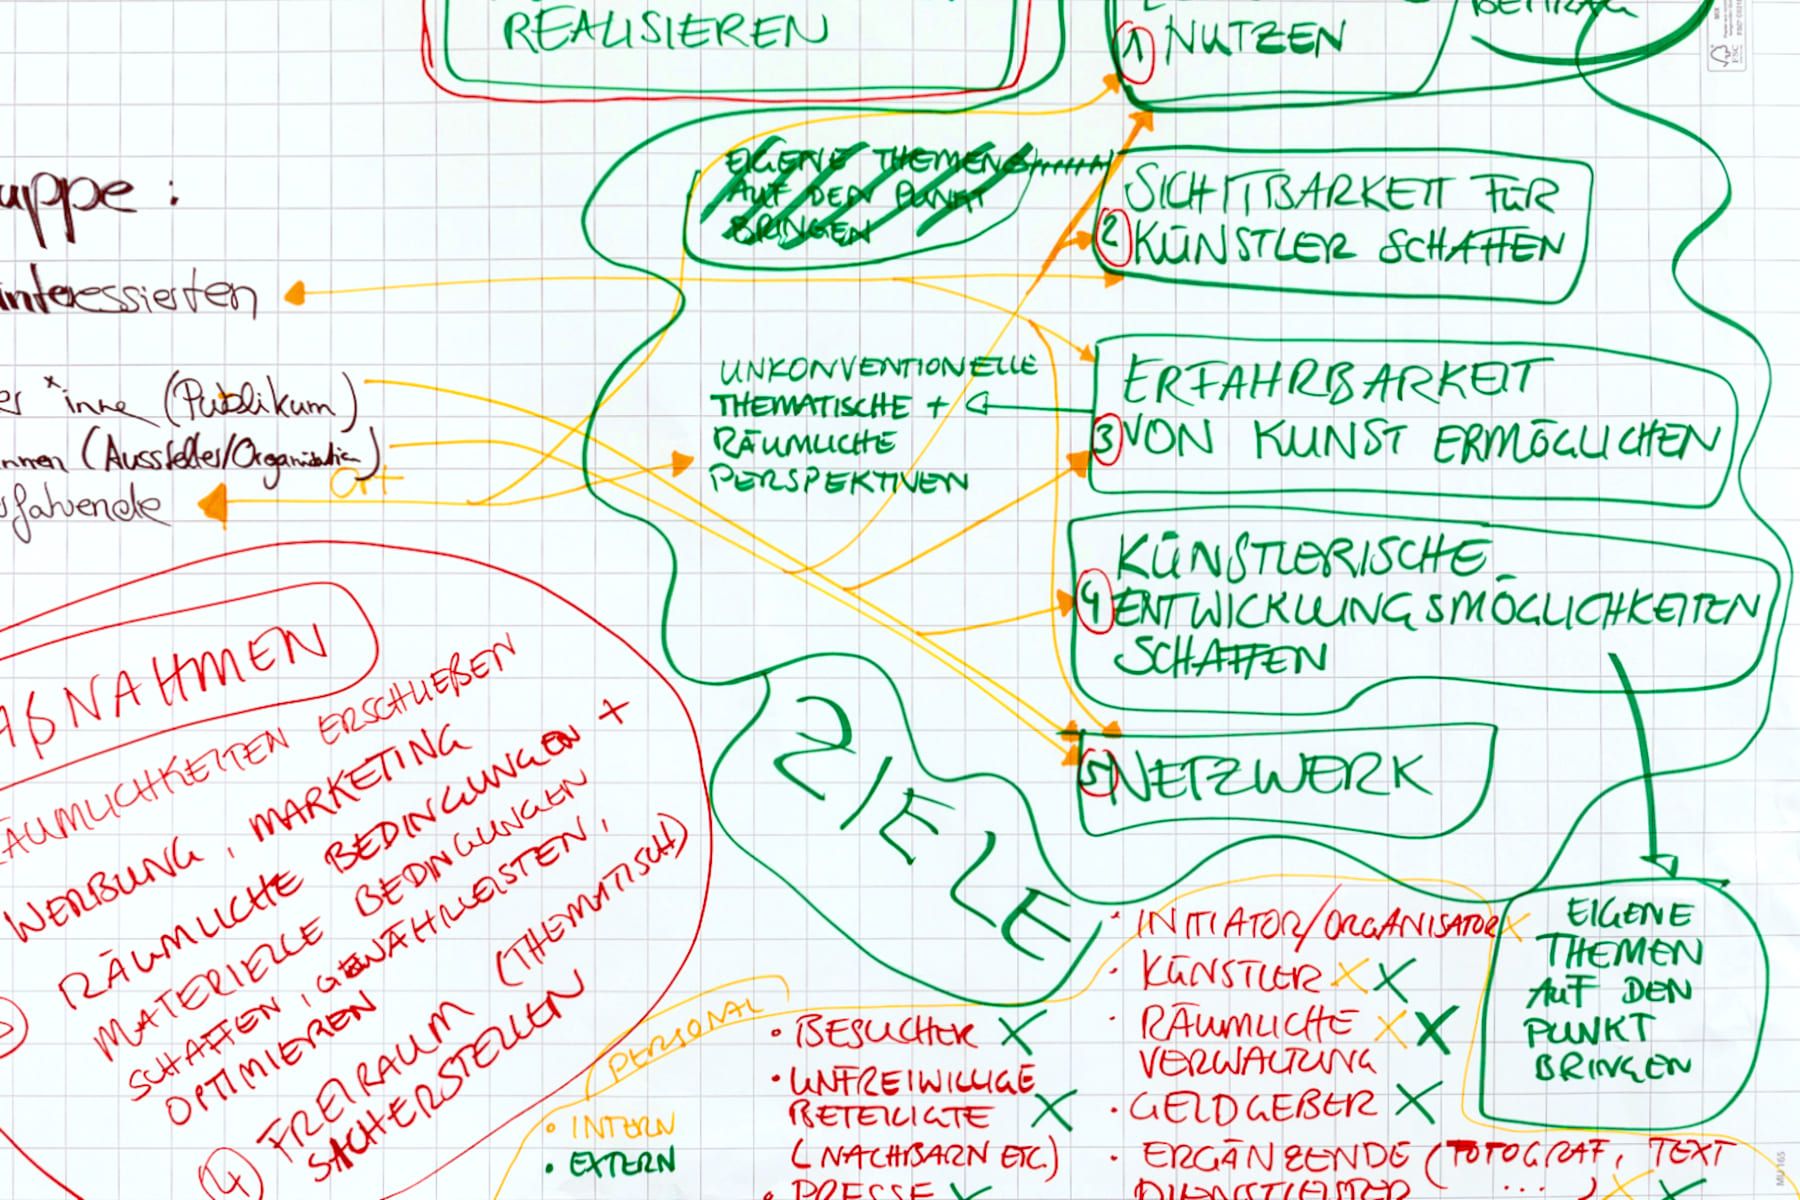 REALISIEREN
① NUTZEN
BEITRAG
FSC
EIGENE THEMEN
AUF DEN PUNKT
BRINGEN
SICHTBARKEIT FÜR
② KÜNSTLER SCHAFFEN
uppe :
interessierten
er *inne (Publikum)
nnen (Aussteller/Organisation)
Ort
rfahrende
UNKONVENTIONELLE
THEMATISCHE +
RÄUMLICHE
PERSPEKTIVEN
ERFAHRBARKEIT
③ VON KUNST ERMÖGLICHEN
KÜNSTLERISCHE
④ ENTWICKLUNGSMÖGLICHKEITEN
SCHAFFEN
⑤ NETZWERK
ZIELE
AßNAHMEN
ÄUMLICHKEITEN ERSCHLIEßEN
WERBUNG, MARKETING
RÄUMLICHE BEDINGUNGEN +
MATERIELLE BEDINGUNGEN
SCHAFFEN, GEWÄHRLEISTEN,
OPTIMIEREN
④ FREIRAUM (THEMATISCH)
SICHERSTELLEN
PERSONAL
• INTERN
• EXTERN
• BESUCHER X
• UNFREIWILLIGE
BETEILIGTE X
(NACHBARN ETC.)
• PRESSE X
• INITIATOR/ORGANISATOR X
• KÜNSTLER X X
• RÄUMLICHE X X
VERWALTUNG
• GELDGEBER X
• ERGÄNZENDE (FOTOGRAF, TEXT
DIENSTLEISTER ...) X X
EIGENE
THEMEN
AUF DEN
PUNKT
BRINGEN